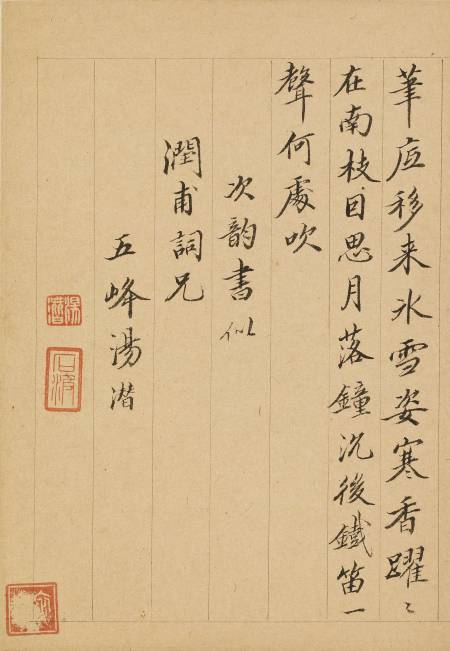 筆底移来氷雪姿寒香躍〻
在南枝因思月落鐘沉後鐵笛一
聲何處吹
次韵書似
潤甫詞兄
五峰湯潜